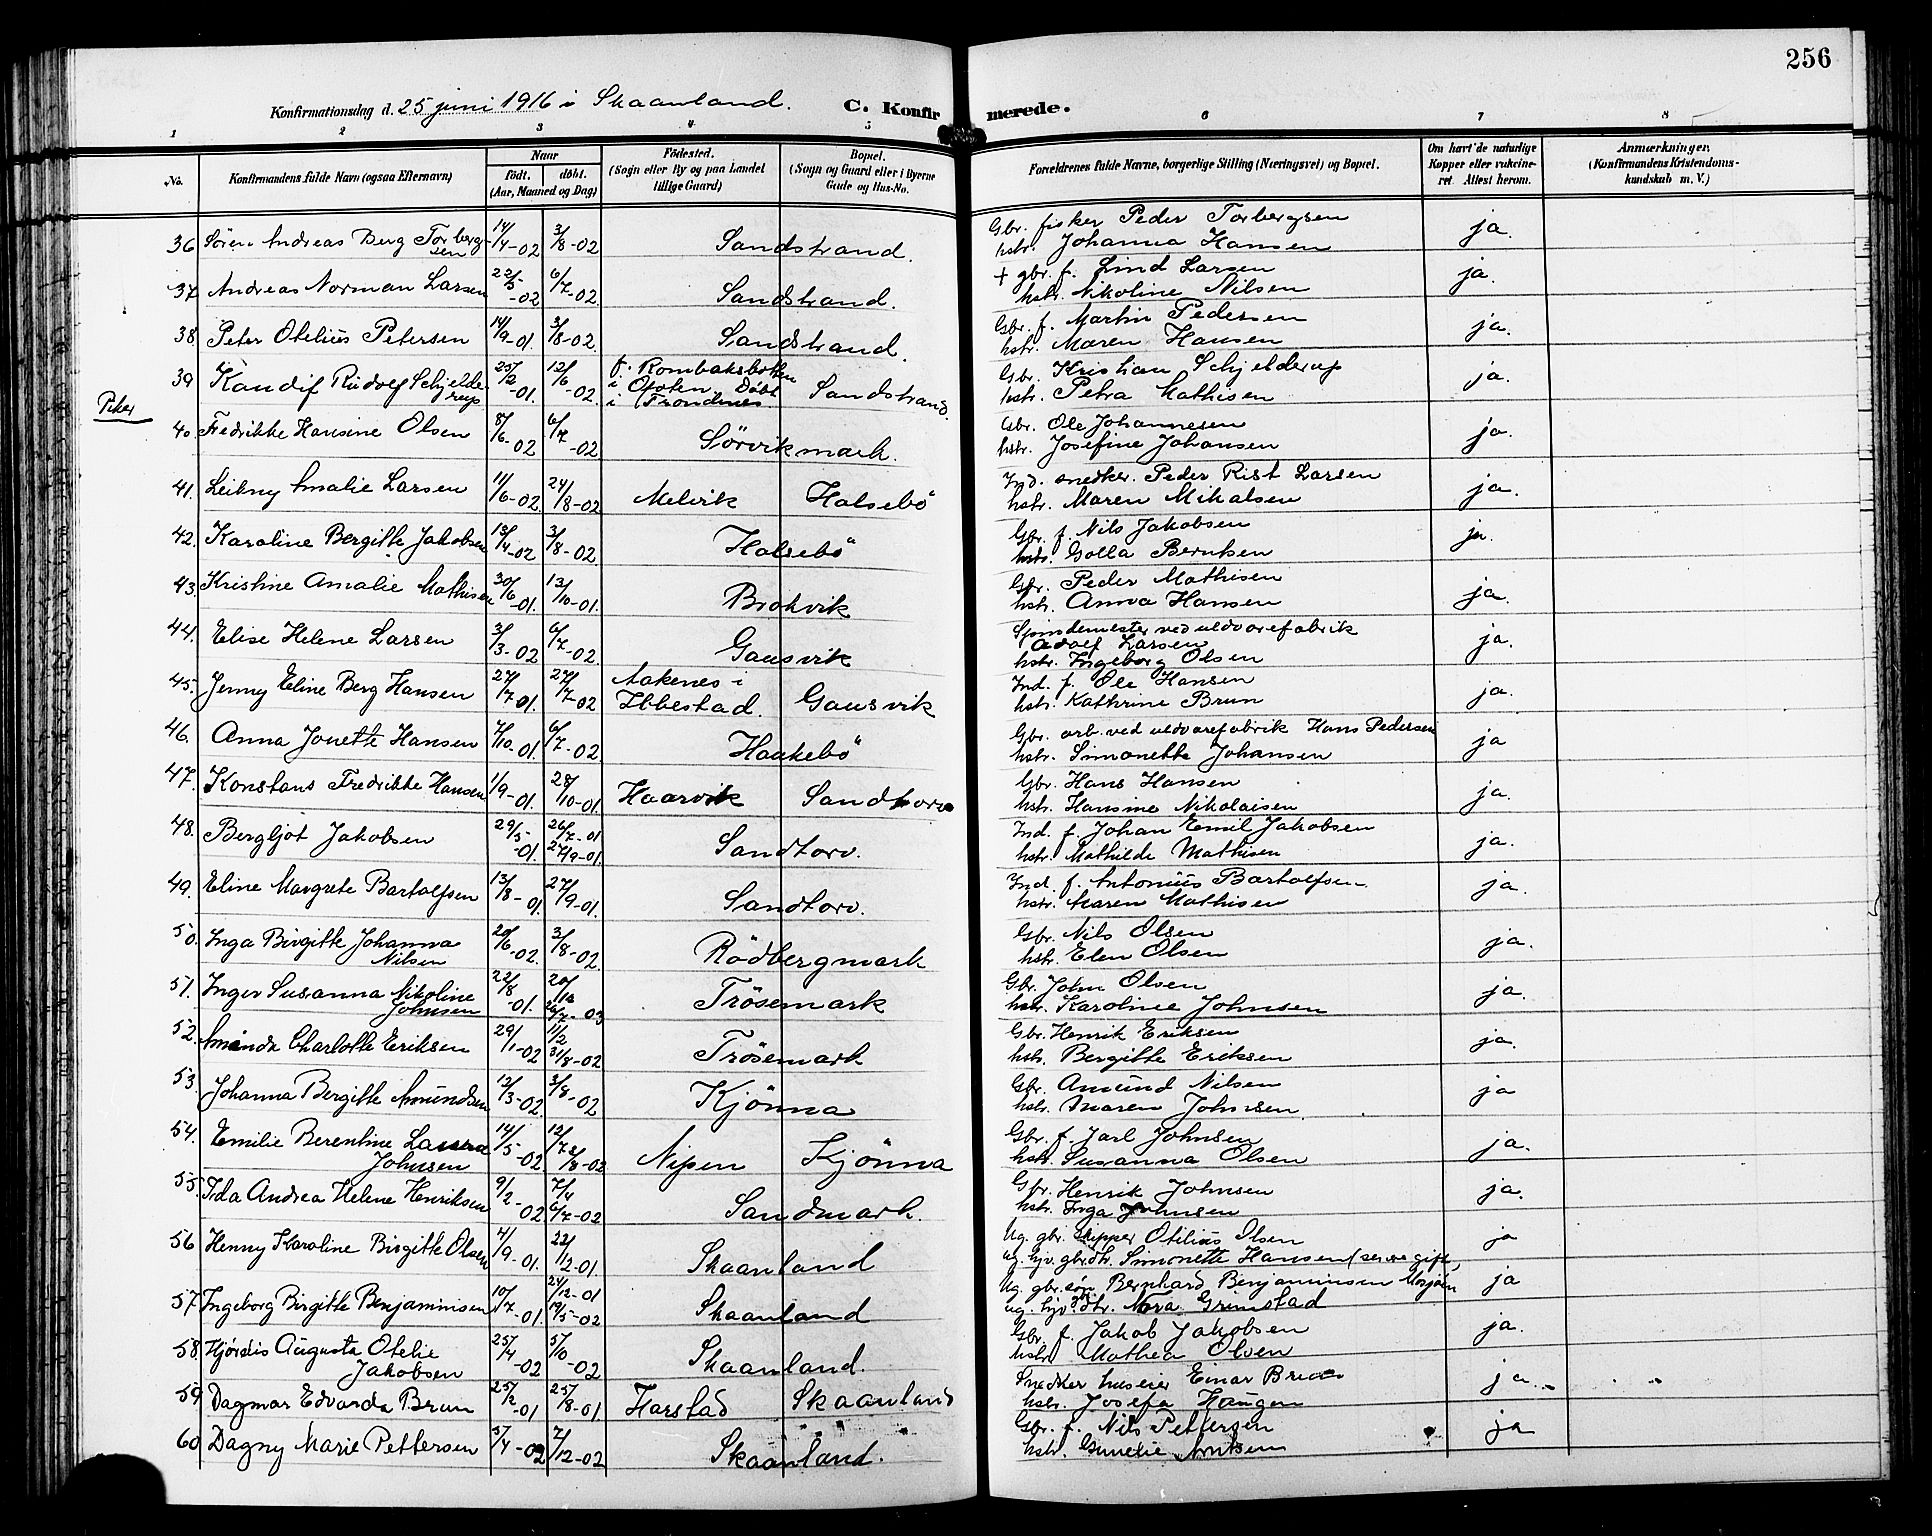 256
Konfirmationsdag d. 25 juni 1916 i Skaanland. C. Konfirmerede.
1 2 3 4 5 6 7 8
No. Konfirmandens fulde Navn (ogsaa Efternavn) Naar födt. döbt. (Aar, Maaned og Dag) Födested. (Sogn eller By og paa Landet tillige Gaard) Bopæl. (Sogn og Gaard eller i Byerne Gade og Hus-No. Forældrenes fulde Navne, borgerlige Stilling (Næringsvei) og Bopæl. Om havt de naturlige Kopper eller vakcineret. Attest herom. Anmærkninger. (Konfirmandens Kristendomskundskab m. V.)
36 Sören Andreas Berg Torbergsen 14/4-02 3/8-02 Sandstrand. Gbr. fisker Peder Torbergsen
hstr. Johanna Hansen ja.
37 Andreas Norman Larsen 22/5-02 6/7-02 Sandstrand. + gbr. f. Lind Larsen
hstr. Nikoline Nilsen ja.
38. Peter Otelius Petersen 14/9-01. 3/8-02. Sandstrand. Gbr. f. Martin Pedersen
hstr. Maren Hansen ja.
39 Kandif Rudolf Schjelderup 25/2-01. 12/6-02. f. Rombaksbotten i Ofoten. Döbt i Trondenes Sandstrand. Gbr. Kristian Schjelderup
hstr. Petra Mathisen ja.
Piker
40. Fredrikke Hansine Olsen 8/6-02 6/7-02 Sörvikmark. Gbr. Ole Johannesen
hstr. Josefine Johansen ja.
41. Leikny Amalie Larsen 11/6-02 24/8-02 Melvik Halsebö Ind. snedker. Peder Rist Larsen
hstr. Maren Mikalsen ja.
42. Karoline Bergitte Jakobsen 13/4-02 3/8-02 Halsebö Gbr. f. Nils Jakobsen
hstr. Golla Berntsen ja.
43. Kristine Amalie Mathisen 30/6-01. 13/10-01. Brokvik Gbr. Peder Mathisen
hstr. Anna Hansen ja.
44. Elise Helene Larsen 3/3-02 6/7-02. Gausvik Spindemester ved uldvarefabrik
Adolf Larsen
hstr. Ingeborg Olsen ja.
45. Jenny Eline Berg Hansen 27/7-01. 27/7-02 Aakenes i Ibbestad. Gausvik Ind. f. Ole Hansen
hstr. Kathrine Brun ja.
46. Anna Jonette Hansen 4/10-01. 6/7-02. Haukebö Gbr. arb. ved uldvarefabrik Hans Pedersen
hstr. Simonette Johansen ja
47. Konstans Fredrikke Hansen 1/9-01. 28/10-01. Haarvik Sandtorv Gbr. Hans Hansen
hstr. Hansine Nikolaisen ja.
48. Bergljot Jakobsen 29/5-01. 26/7-01 27/9-01. Sandtorv. Ind. f. Johan Emil Jakobsen
hstr. Mathilde Mathisen ja.
49. Eline Margrete Bartolfsen 13/8-01. 27/9-01. Sandtorv. Ind. f. Antonius Bartolfsen.
hstr. Maren Mathisen ja.
50. Inga Birgitte Johanna Nilsen 20/6-02. 3/8-02. Rödbergmark Gbr. Nils Olsen
hstr. Elen Olsen ja.
51. Inger Susanna Nikoline Johnsen 22/8-01. 20/10 26/7-03 Trösemark Gbr. John Olsen
hstr. Karoline Johnsen ja.
52. Aminda Charlotte Eriksen 29/1-02 11/2 31/8-02 Trösemark Gbr. Henrik Eriksen
hstr. Bergitte Eriksen ja.
53. Johanna Bergitte Amundsen 12/3-02 3/8-02 Kjönna Gbr. Amund Nilsen
hstr. Maren Johnsen. ja
54. Emilie Berentine Johnsen 14/5-02 12/7 3/8-02 Nipen Kjönna Gbr. f. Jarl Johnsen
hstr. Susanna Olsen ja.
55. Ida Andrea Helene Henriksen 9/2-02 7/4 6/7-02 Sandmark. Gbr. Henrik Johnsen
hstr. Inga Johnsen ja.
56 Henny Karoline Birgitte Olsen 4/9-01. 22/12-01 Skaanland Ug. gbr. skipper Otelius Olsen
ug. hjv. gbrdtr. Simonette Hansen (senere gift, ja
57. Ingeborg Birgitte Benjaminsen 10/7-01. 24/12-01 19/5-02 Skaanland Ug. gbr. søn Bernhard Benjaminsen Mosjøen
ug. hjv. gbr. dtr. Nora Grimstad ja
58. Hjördis Augusta Otelie Jakobsen 25/4-02 5/10-02 Skaanland. Gbr. f. Jakob Jakobsen
hstr. Mathea Olsen ja.
59 Dagmar Edvarda Brun 25/2-01 25/8-01 Harstad Skaanland Snedker huseier Einar Brun
hstr. Josefa Haugen ja.
60 Dagny Marie Pettersen 3/4-02 7/12-02 Skaanland. Gbr. f. Nils Pettersen
hstr. Amtsen ja